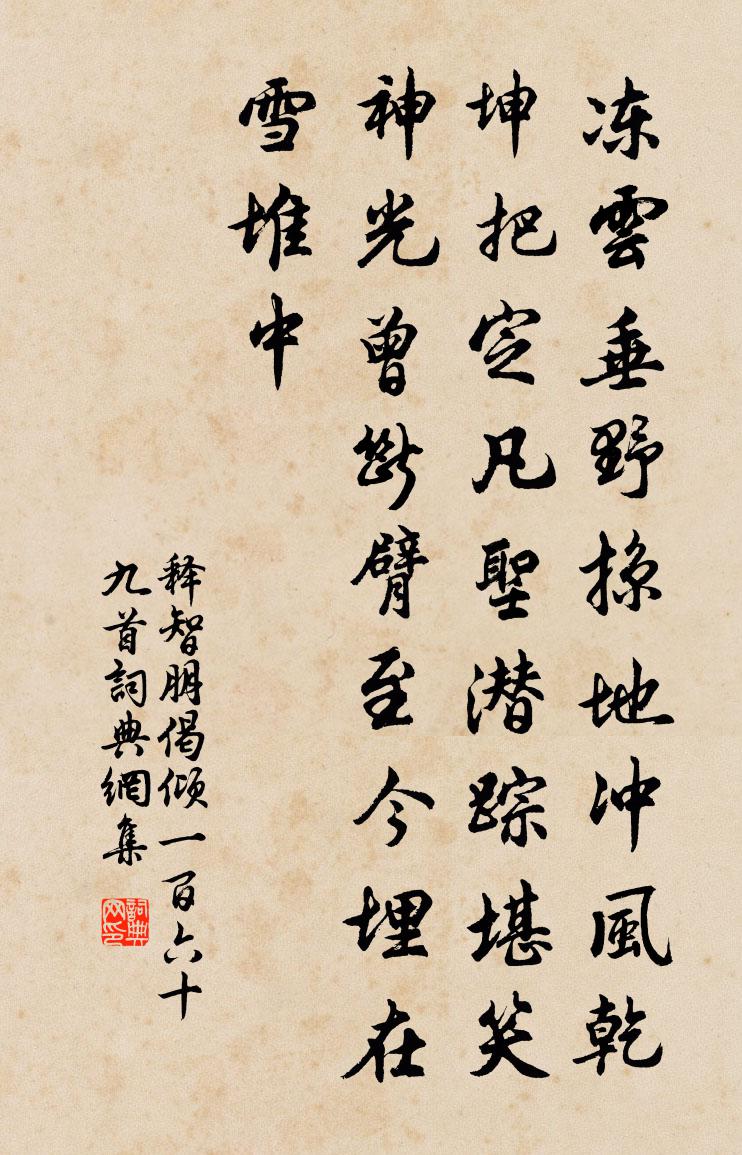 冻雲垂野掠地冲風乾
坤把定凡聖潜踪堪笑
神光曾斷臂至今埋在
雪堆中
释智朋偈倾一百六十
九首詞典網集
詞典
网印